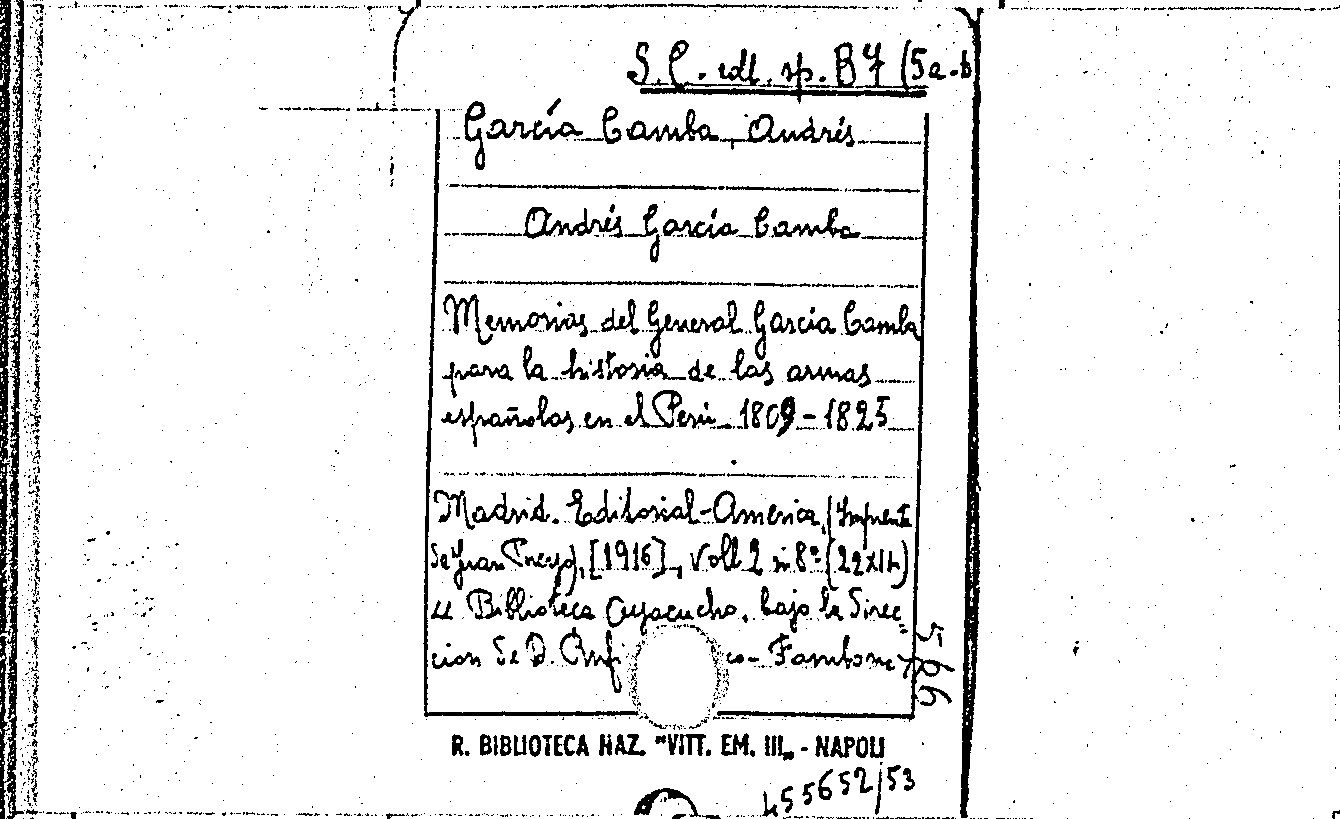 S. C. coll. sp. B 7 (5a-b
García Camba, Andrés
Andrés García Camba
Memorias del General García Camba
para la historia de las armas
españolas en el Perú. 1809-1825
Madrid. Editorial-América, (Imprenta
de Juan Pueyo), [1916], Voll 2 in 8º (22x14)
Biblioteca Ayacucho, bajo la direc=
cion de D. Rufi co- Fombona
R. BIBLIOTECA NAZ. "VITT. EM. III„ - NAPOLI
455652/53